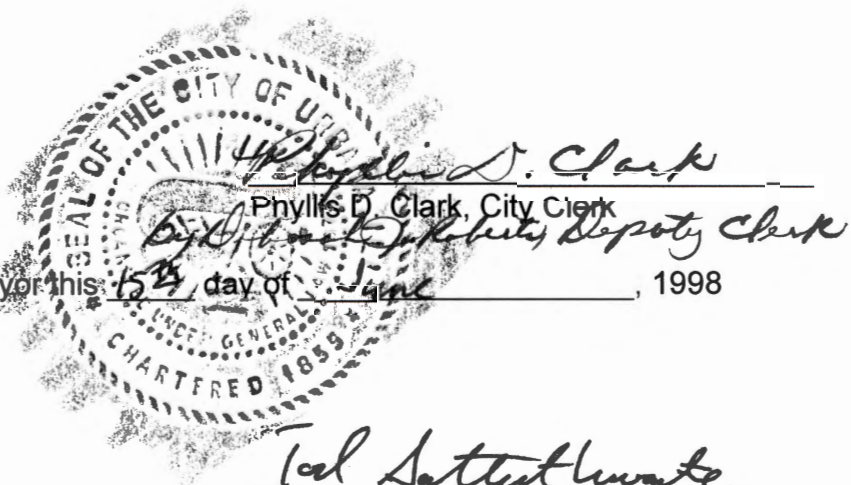 SEAL OF THE CITY OF URBA
CHARTERED 1859
GENERAL
Phyllis D. Clark
Phyllis D. Clark, City Clerk
By Roberts, Deputy Clerk
yor this 15th day of June, 1998
Tod Satterthwaite